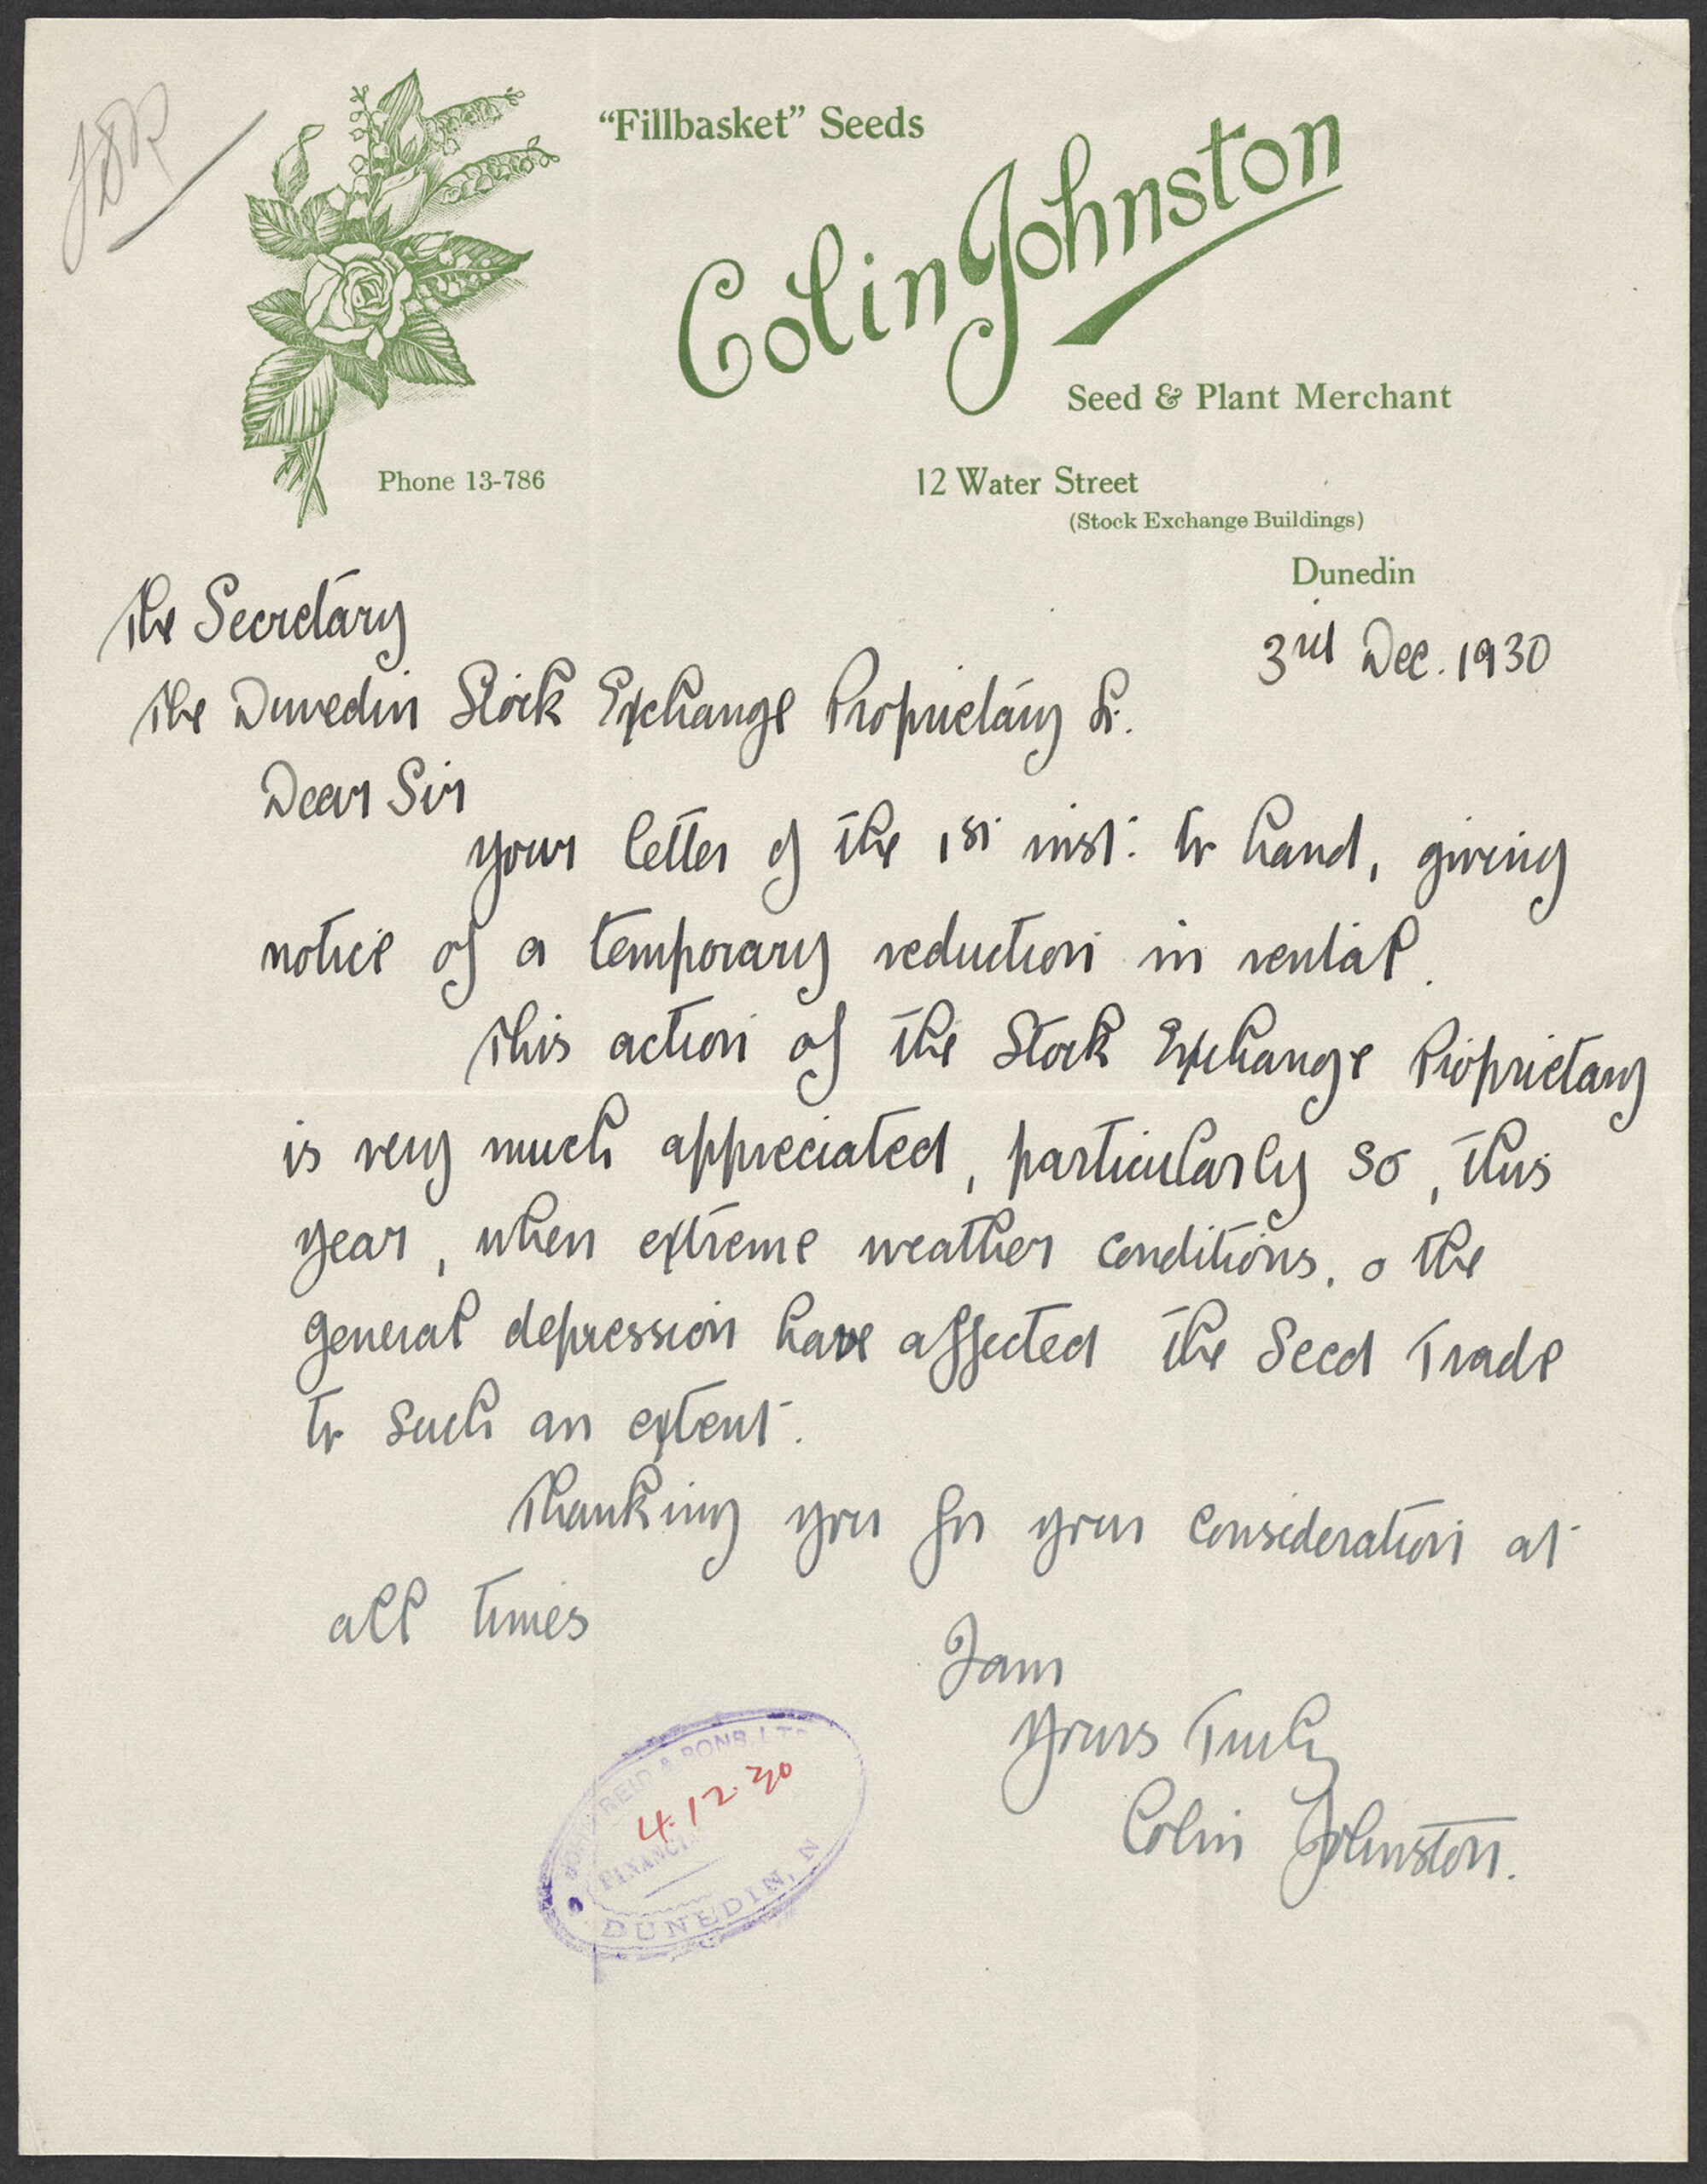 JSR
"Fillbasket" Seeds
Colin Johnston
Seed & Plant Merchant
Phone 13-786
12 Water Street
(Stock Exchange Buildings)
Dunedin
3rd Dec. 1930
The Secretary
The Dunedin Stock Exchange Proprietary
Dear Sir
Your letter of the 1st inst: to hand, giving
notice of a temporary reduction in rental.
This action of the Stock Exchange Proprietary
is very much appreciated, particularly so, this
year, when extreme weather conditions, & the
general depression have affected the Seed Trade
to such an extent.
Thanking you for your consideration at
all times
I am
Yours Truly
Colin Johnston.
JOHN REID & SONS, LTD
4.12.30
DUNEDIN, N